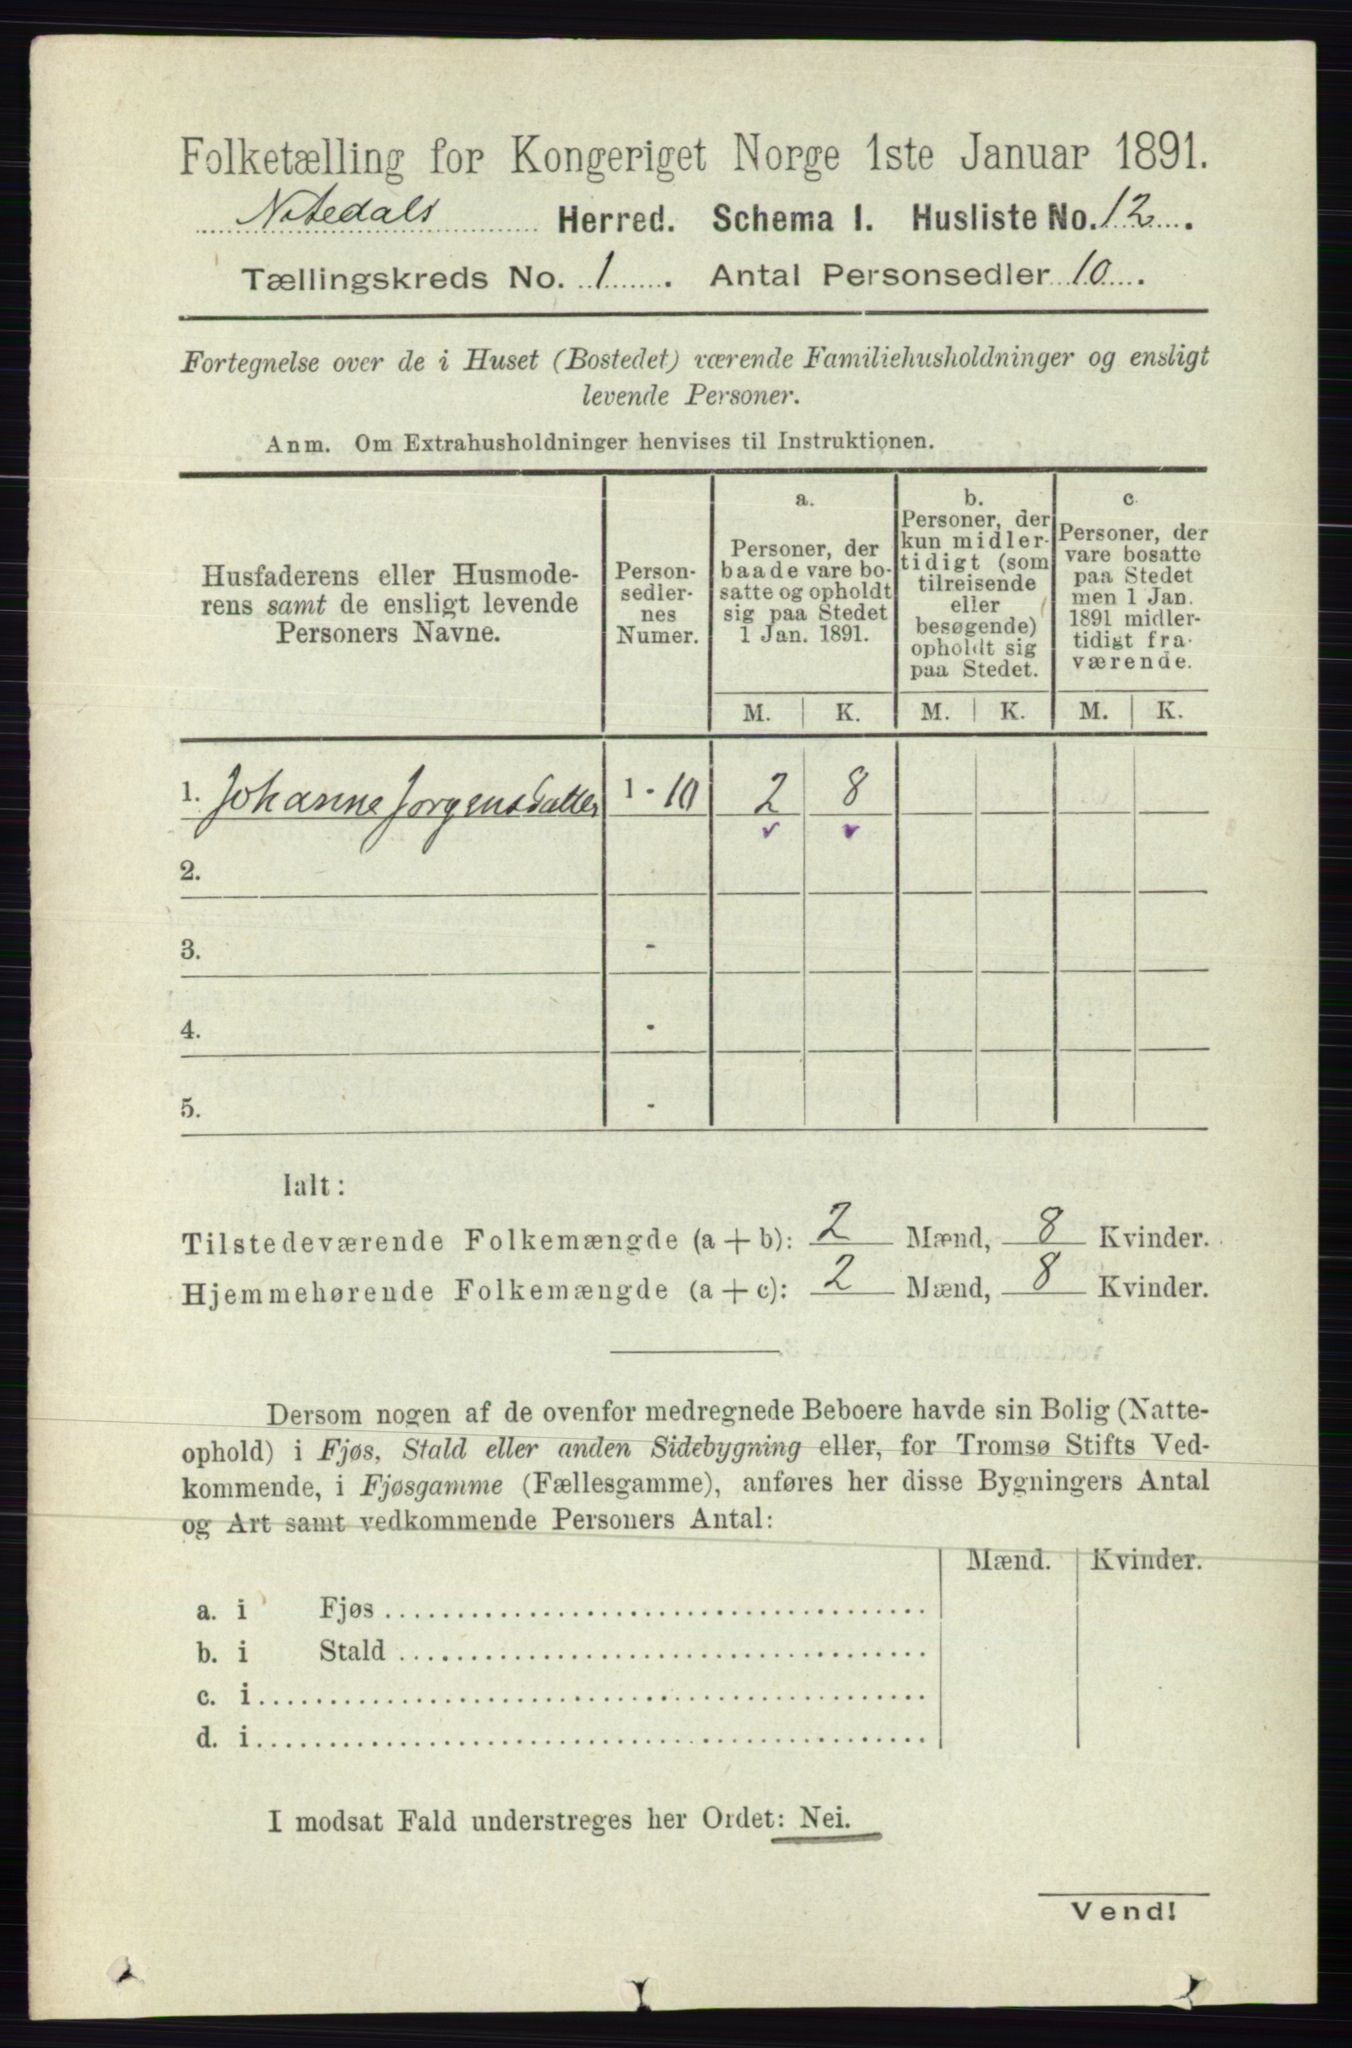 Folketælling for Kongeriget Norge 1ste Januar 1891.
Nitedals Herred. Schema I. Husliste No. 12.
Tællingskreds No. 1. Antal Personsedler 10.
Fortegnelse over de i Huset (Bostedet) værende Familiehusholdninger og ensligt
levende Personer.
Anm. Om Extrahusholdninger henvises til Instruktionen.
Husfaderens eller Husmode-
rens samt de ensligt levende
Personers Navne.
Person-
sedler-
nes
Numer.
a.
Personer, der
baade vare bo-
satte og opholdt
sig paa Stedet
1 Jan. 1891.
b.
Personer, der
kun midler-
tidigt (som
tilreisende
eller
besøgende)
opholdt sig
paa Stedet.
c
Personer, der
vare bosatte
paa Stedet
men 1 Jan.
1891 midler-
tidigt fra-
værende.
M. K. M. K. M. K.
1. Johanne Jørgensdatter 1 - 10 2 8
2.
3. -
4. -
5. -
Ialt:
Tilstedeværende Folkemængde (a + b): 2 Mænd, 8 Kvinder.
Hjemmehørende Folkemængde (a + c): 2 Mænd, 8 Kvinder.
Dersom nogen af de ovenfor medregnede Beboere havde sin Bolig (Natte-
ophold) i Fjøs, Stald eller anden Sidebygning eller, for Tromsø Stifts Ved-
kommende, i Fjøsgamme (Fællesgamme), anføres her disse Bygningers Antal
og Art samt vedkommende Personers Antal:
Mænd. Kvinder.
a. i Fjøs
b. i Stald
c. i
d. i
I modsat Fald understreges her Ordet: Nei.
Vend!